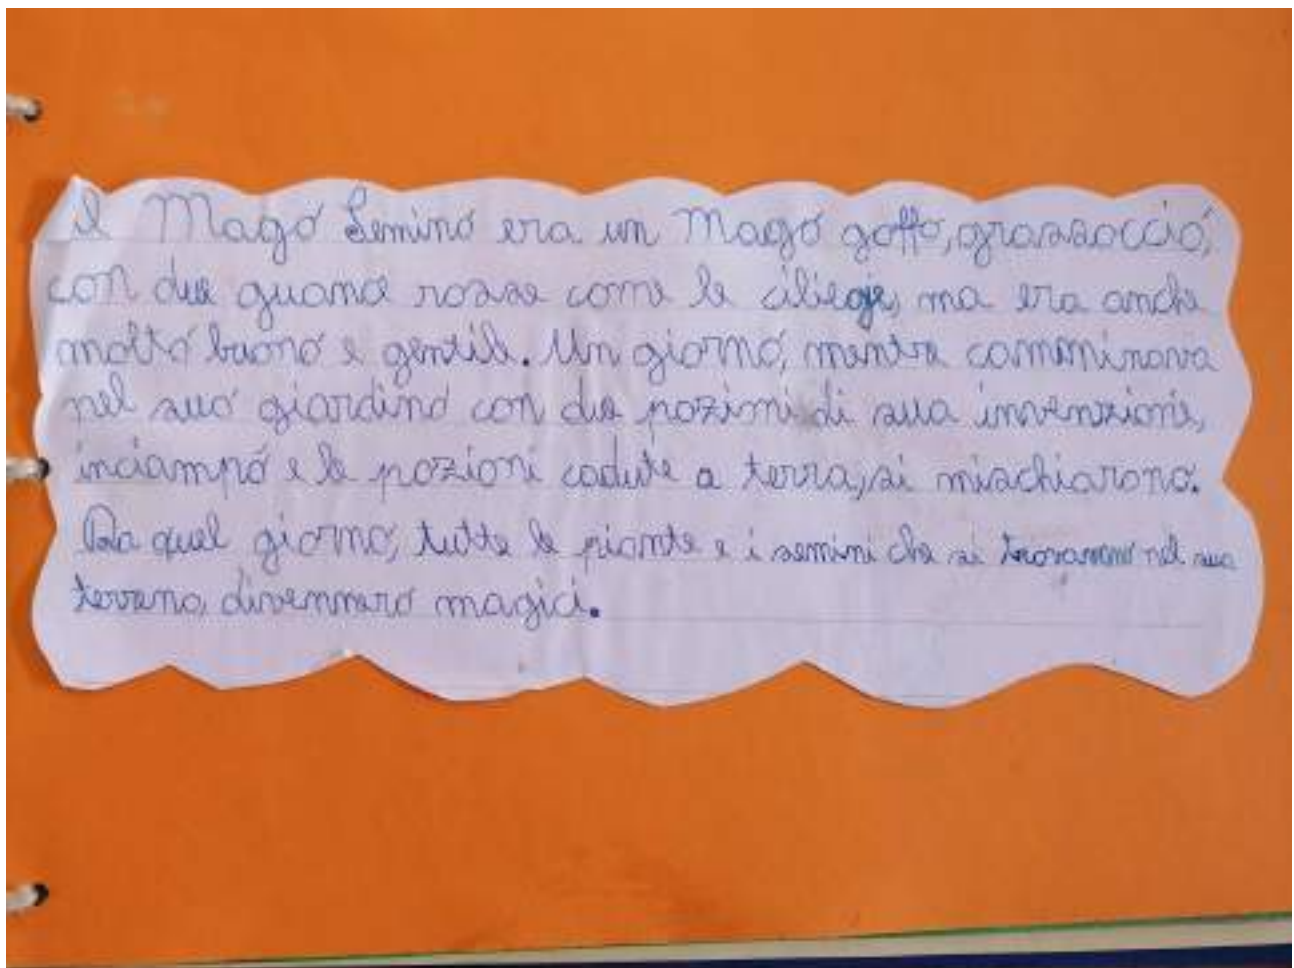 Il Mago Semino era un Mago goffo, grassoccio,
con due guance rosse come le ciliegie, ma era anche
molto buono e gentile. Un giorno, mentre camminava
nel suo giardino con due pozioni di sua invenzione,
inciampò e le pozioni cadute a terra, si mischiarono.
Da quel giorno, tutte le piante e i semini che si trovavano nel suo
terreno, divennero magici.